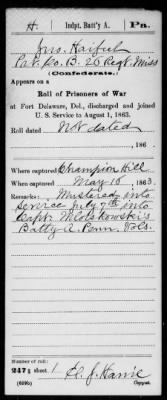 H. Indpt. Batt'y A. Pa.
Jno.
Pvt. Co. B. 26 Regt. Miss
(Confederate.)
Appears on a
Roll of Prisoners of War
at Fort Delaware, Del., discharged and joined
U. S. Service to August 1, 1863.
Roll dated
Not dated
, 186
Where captured Champion Hill
When captured May 16, 1863.
Remarks: Mustered into
service July 7th into
Capt.
Batty A. Penn. Vols.
Number of roll:
247; sheet 1
(639b) Copyist.